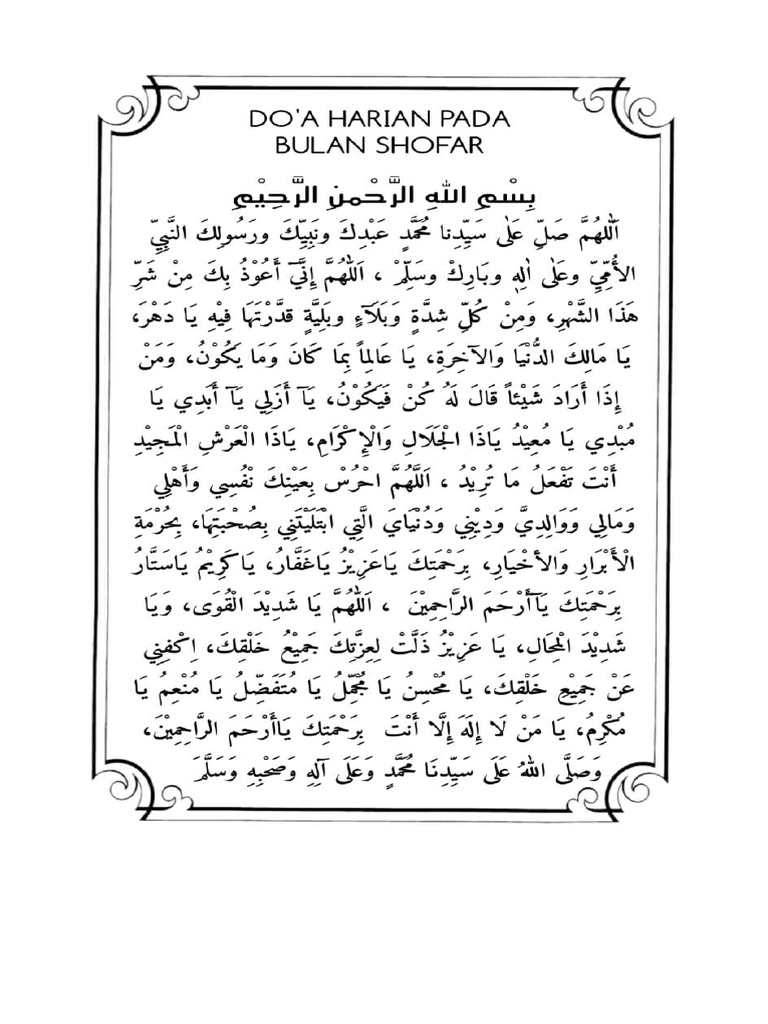 DO'A HARIAN PADA
BULAN SHOFAR
بِسْمِ اللهِ الرَّحْمٰنِ الرَّحِيْمِ
اَللّٰهُمَّ صَلِّ عَلٰى سَيِّدِنا مُحَمَّدٍ عَبْدِكَ ونَبِيِّكَ ورَسُولِكَ النَّبِيِّ
الأُمِّيِّ وعَلٰى اٰلِهٖ وبَارِكْ وسَلِّمْ ، اَللّٰهُمَّ إِنِّيْٓ أَعُوْذُ بِكَ مِنْ شَرِّ
هَذَا الشَّهْرِ، وَمِنْ كُلِّ شِدَّةٍ وَبَلَآءٍ وبَلِيَّةٍ قدَّرْتَهَا فِيْهِ يَا دَهْرَ،
يَا مَالِكَ الدُّنْيَا وَالآخِرَةِ، يَا عَالِماً بِمَا كَانَ وَمَا يَكُوْنُ، وَمَنْ
إِذَا أَرَادَ شَيْئاً قَالَ لَهُ كُنْ فَيَكُوْنُ، يَآ أَزَلِي يَآ أَبَدِي يَا
مُبْدِي يَا مُعِيْدُ يَاذَا الْجَلَالِ وَالْإِكْرَامِ، يَاذَا الْعَرْشِ الْمَجِيْدِ
أَنْتَ تَفْعَلُ مَا تُرِيْدُ ، اَللَّهُمَّ احْرُسْ بِعَيْنِكَ نَفْسِي وَأَهْلِي
وَمَالِي وَوَالِدِيَّ وَدِيْنِي وَدُنْيَايَ الَّتِي ابْتَلَيْتَنِي بِصُحْبَتِهَا، بِحُرْمَةِ
الْأَبْرَارِ وَالأَخْيَارِ، بِرَحْمَتِكَ يَاعَزِيْزُ يَاغَفَّارُ، يَاكَرِيْمُ يَاسَتَّارُ
بِرَحْمَتِكَ يَآأَرْحَمَ الرَّاحِمِيْنَ ، اَللّٰهُمَّ يَا شَدِيْدَ الْقُوَى، وَيَا
شَدِيْدَ الْمِحَالِ، يَا عَزِيْزُ ذَلَّتْ لِعِزَّتِكَ جَمِيْعُ خَلْقِكَ، اِكْفِنِي
عَنْ جَمِيْعِ خَلْقِكَ، يَا مُحْسِنُ يَا مُجَمِّلُ يَا مُتَفَضِّلُ يَا مُنْعِمُ يَا
مُكْرِمُ، يَا مَنْ لَا إِلَهَ إِلَّا أَنْتَ بِرَحْمَتِكَ يَاأَرْحَمَ الرَّاحِمِيْنَ،
وَصَلَّى اللهُ عَلَى سَيِّدِنَا مُحَمَّدٍ وَعَلَى آلِهِ وَصَحْبِهِ وَسَلَّمَ